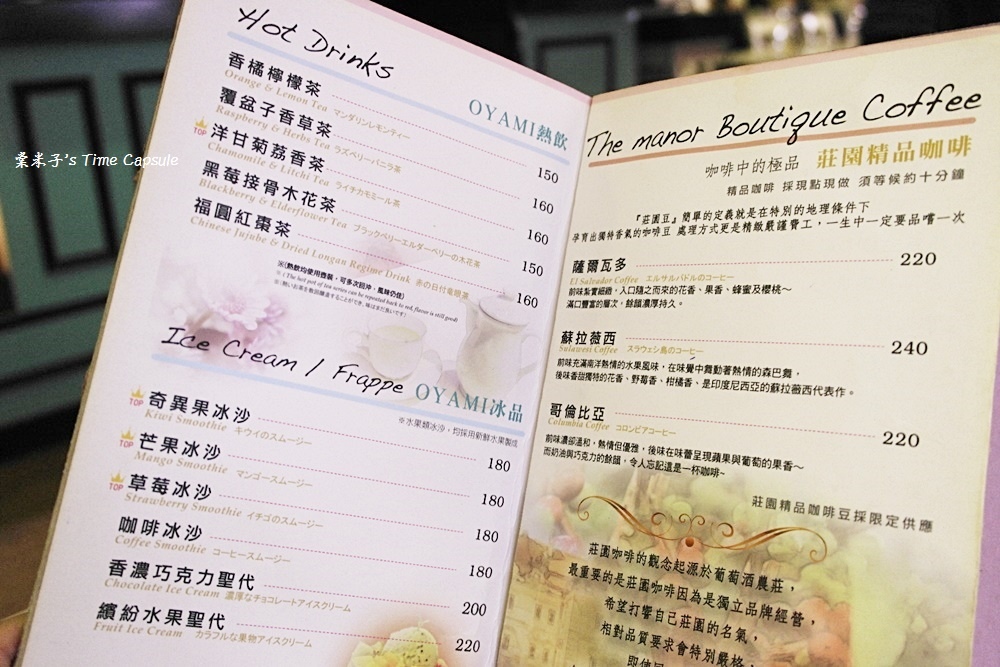 粟米子's Time Capsule
Hot Drinks
OYAMI熱飲
香橘檸檬茶 150
Orange & Lemon Tea マンダリンレモンティー
覆盆子香草茶 160
Raspberry & Herbs Tea ラズベリーバニラ茶
TOP 洋甘菊荔香茶 160
Chamomile & Litchi Tea ライチカモミール茶
黑莓接骨木花茶 150
Blackberry & Elderflower Tea ブラックベリーエルダーベリーの木花茶
福圓紅棗茶 160
Chinese Jujube & Dried Longan Regime Drink 赤の日付竜眼茶
※(熱飲均使用壺裝，可多次回沖，風味仍佳)
Ice Cream / Frappe
OYAMI冰品
※水果類冰沙，均採用新鮮水果製成
TOP 奇異果冰沙 180
Kiwi Smoothie キウイのスムージー
TOP 芒果冰沙 180
Mango Smoothie マンゴースムージー
TOP 草莓冰沙 180
Strawberry Smoothie イチゴのスムージー
咖啡冰沙 180
Coffee Smoothie コーヒースムージー
香濃巧克力聖代 200
Chocolate Ice Cream 濃厚なチョコレートアイスクリーム
繽紛水果聖代 220
Fruit Ice Cream カラフルな果物アイスクリーム
The manor Boutique Coffee
咖啡中的極品 莊園精品咖啡
精品咖啡 採現點現做 須等候約十分鐘
『莊園豆』簡單的定義就是在特別的地理條件下
孕育出獨特香氣的咖啡豆 處理方式更是精緻嚴謹費工，一生中一定要品嚐一次
薩爾瓦多 220
El Salvador Coffee エルサルバドルのコーヒー
前味紮實細緻，入口隨之而來的花香、果香、蜂蜜及櫻桃～
滿口豐富的層次，餘韻濃厚持久。
蘇拉薇西 240
Sulawesi Coffee スラウェシ島のコーヒー
前味充滿南洋熱情的水果風味，在味覺中舞動著熱情的森巴舞，
後味香甜獨特的花香、野莓香、柑橘香、是印度尼西亞的蘇拉薇西代表作。
哥倫比亞 220
Columbia Coffee コロンビアコーヒー
前味濃卻溫和，熱情但優雅，後味在味蕾呈現蘋果與葡萄的果香～
而奶油與巧克力的餘韻，令人忘記這是一杯咖啡~
莊園精品咖啡豆採限定供應
莊園咖啡的觀念起源於葡萄酒農莊，
最重要的是莊園咖啡因為是獨立品牌經營，
希望打響自己莊園的名氣，
相對品質要求會特別嚴格，